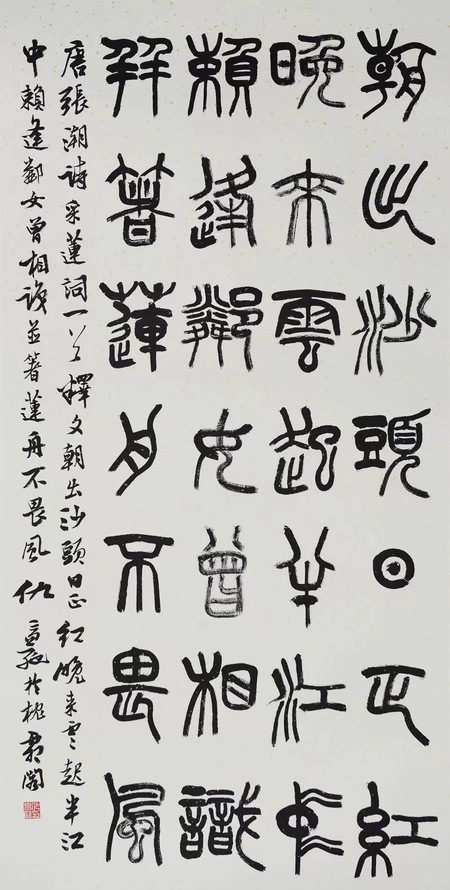 朝出沙頭日正紅
晚來雲起半江中
賴逢鄰女曾相識
并著蓮舟不畏風
唐張潮詩采蓮詞一首釋文朝出沙頭日正紅晚來雲起半江
中賴逢鄰女曾相識並著蓮舟不畏風仇於